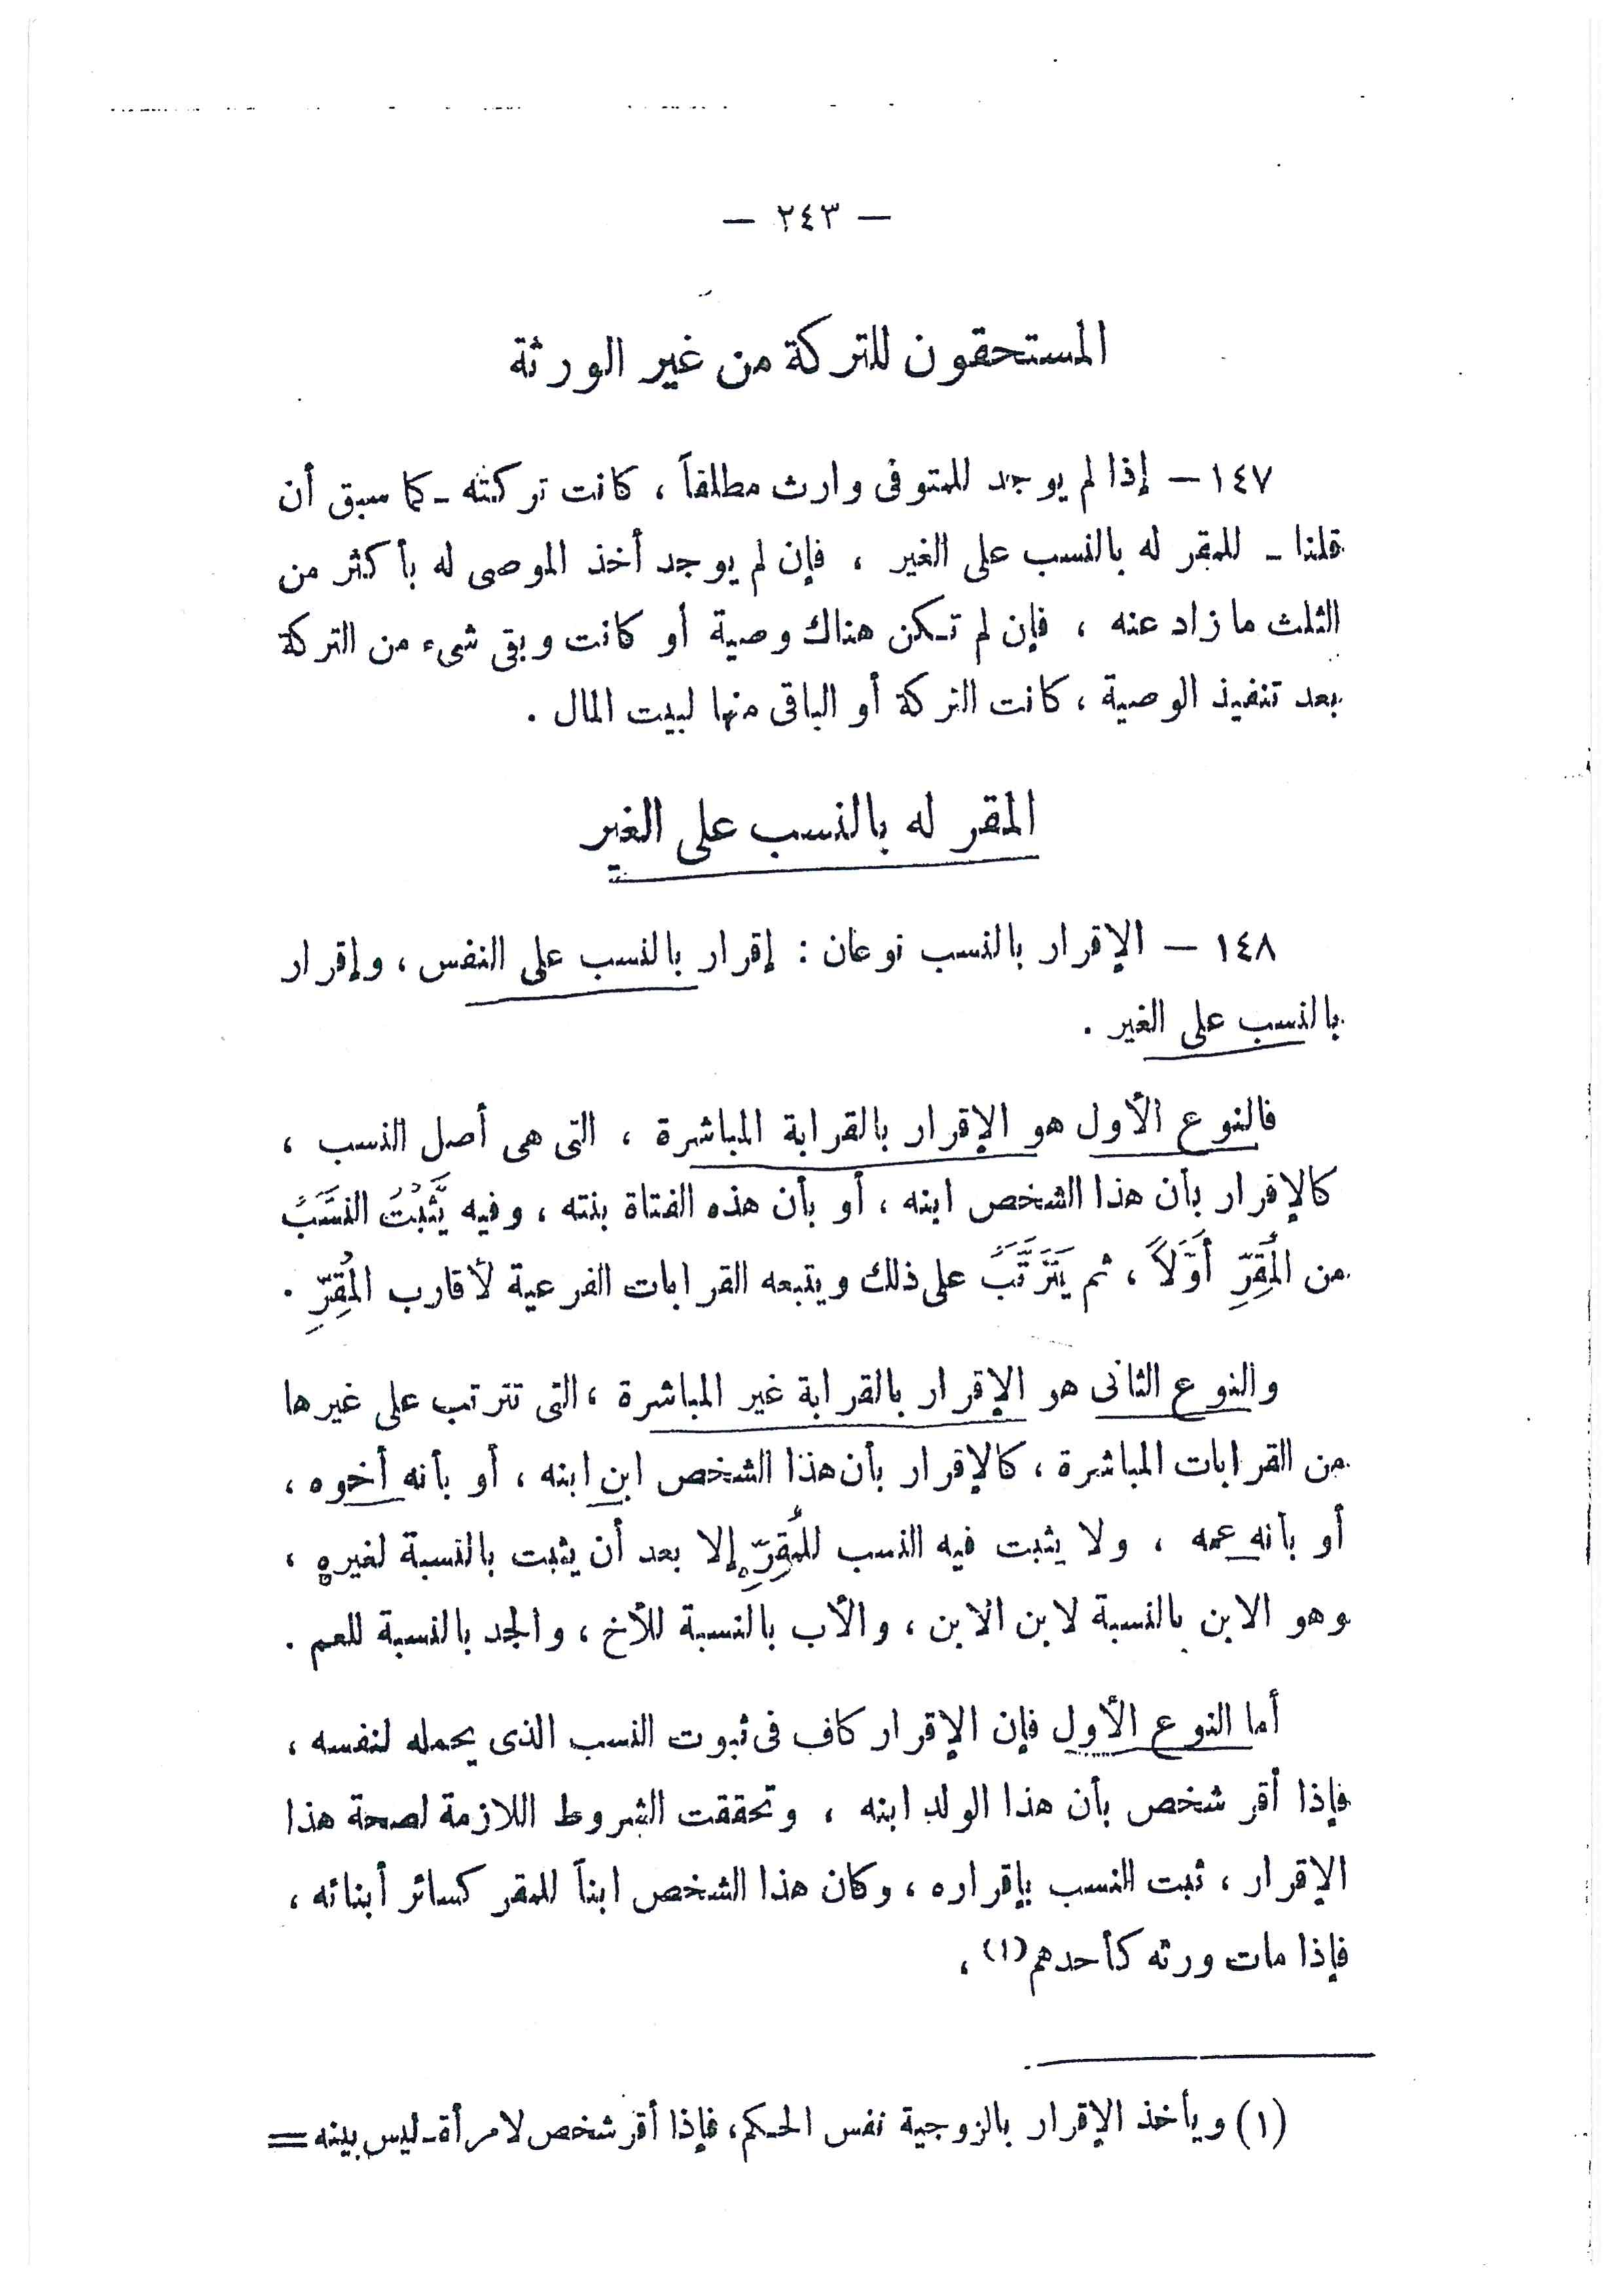 — ٢٤٣ —
المستحقون للتركة من غير الورثة
١٤٧ — إذا لم يوجد للمتوفى وارث مطلقاً ، كانت تركته ـ كما سبق أن
قلنا ـ للمقر له بالنسب على الغير ، فإن لم يوجد أخذ الموصى له بأكثر من
الثلث ما زاد عنه ، فإن لم تكن هناك وصية أو كانت وبقى شىء من التركة
بعد تنفيذ الوصية ، كانت التركة أو الباقى منها لبيت المال .
المقر له بالنسب على الغير
١٤٨ — الإقرار بالنسب نوعان : إقرار بالنسب على النفس ، وإقرار
بالنسب على الغير .
فالنوع الأول هو الإقرار بالقرابة المباشرة ، التى هى أصل النسب ،
كالإقرار بأن هذا الشخص ابنه ، أو بأن هذه الفتاة بنته ، وفيه يَثْبُتُ النَّسَبُ
من المُقِرِّ أَوَّلاً ، ثم يَتَرَتَّبُ على ذلك ويتبعه القرابات الفرعية لأقارب المُقِرِّ .
والنوع الثانى هو الإقرار بالقرابة غير المباشرة ، التى تترتب على غيرها
من القرابات المباشرة ، كالإقرار بأن هذا الشخص ابن ابنه ، أو بأنه أخوه ،
أو بأنه عمه ، ولا يثبت فيه النسب للمُقِرِّ إلا بعد أن يثبت بالنسبة لغيره ،
وهو الابن بالنسبة لابن الابن ، والأب بالنسبة للأخ ، والجد بالنسبة للعم .
أما النوع الأول فإن الإقرار كاف فى ثبوت النسب الذى يحمله لنفسه ،
فإذا أقر شخص بأن هذا الولد ابنه ، وتحققت الشروط اللازمة لصحة هذا
الإقرار ، ثبت النسب بإقراره ، وكان هذا الشخص ابناً للمقر كسائر أبنائه ،
فإذا مات ورثه كأحدهم (١) ،
(١) ويأخذ الإقرار بالزوجية نفس الحكم ، فإذا أقر شخص لامرأة ـ ليس بينه =